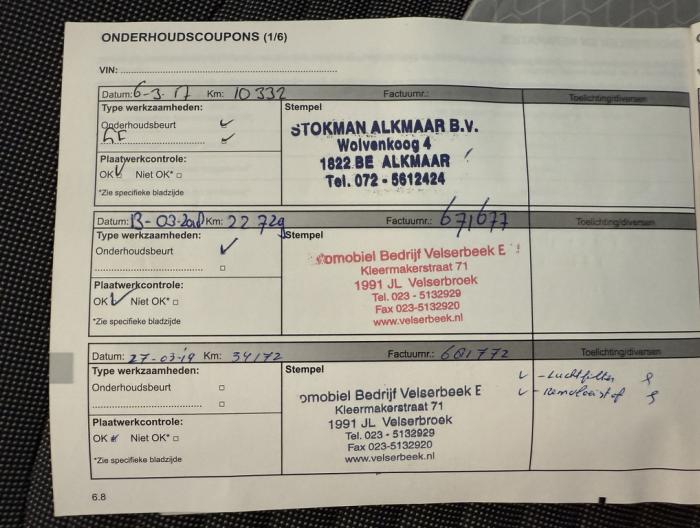 ONDERHOUDSCOUPONS (1/6)
VIN:
Datum: 6-3-17 Km: 10332 Factuurnr.: Toelichting/diversen
Type werkzaamheden: Stempel
Onderhoudsbeurt
STOKMAN ALKMAAR B.V.
Wolvenkoog 4
1822 BE ALKMAAR
Tel. 072 - 5612424
Plaatwerkcontrole:
OK Niet OK*
*Zie specifieke bladzijde
Datum: 13-03-2018 Km: 22729 Factuurnr.: 671677 Toelichting/diversen
Type werkzaamheden: Stempel
Onderhoudsbeurt
omobiel Bedrijf Velserbeek
Kleermakerstraat 71
1991 JL Velserbroek
Tel. 023 - 5132929
Fax 023 - 5132020
www.velserbeek.nl
Plaatwerkcontrole:
OK Niet OK*
*Zie specifieke bladzijde
Datum: 27-03-19 Km: 34172 Factuurnr.: 681772 Toelichting/diversen
Type werkzaamheden: Stempel
Onderhoudsbeurt
omobiel Bedrijf Velserbeek
Kleermakerstraat 71
1991 JL Velserbroek
Tel. 023 - 5132929
Fax 023 5132020
www.velserbeek.nl
- Luchtfilter
- Remvloeistof
Plaatwerkcontrole:
OK Niet OK*
*Zie specifieke bladzijde
6.8